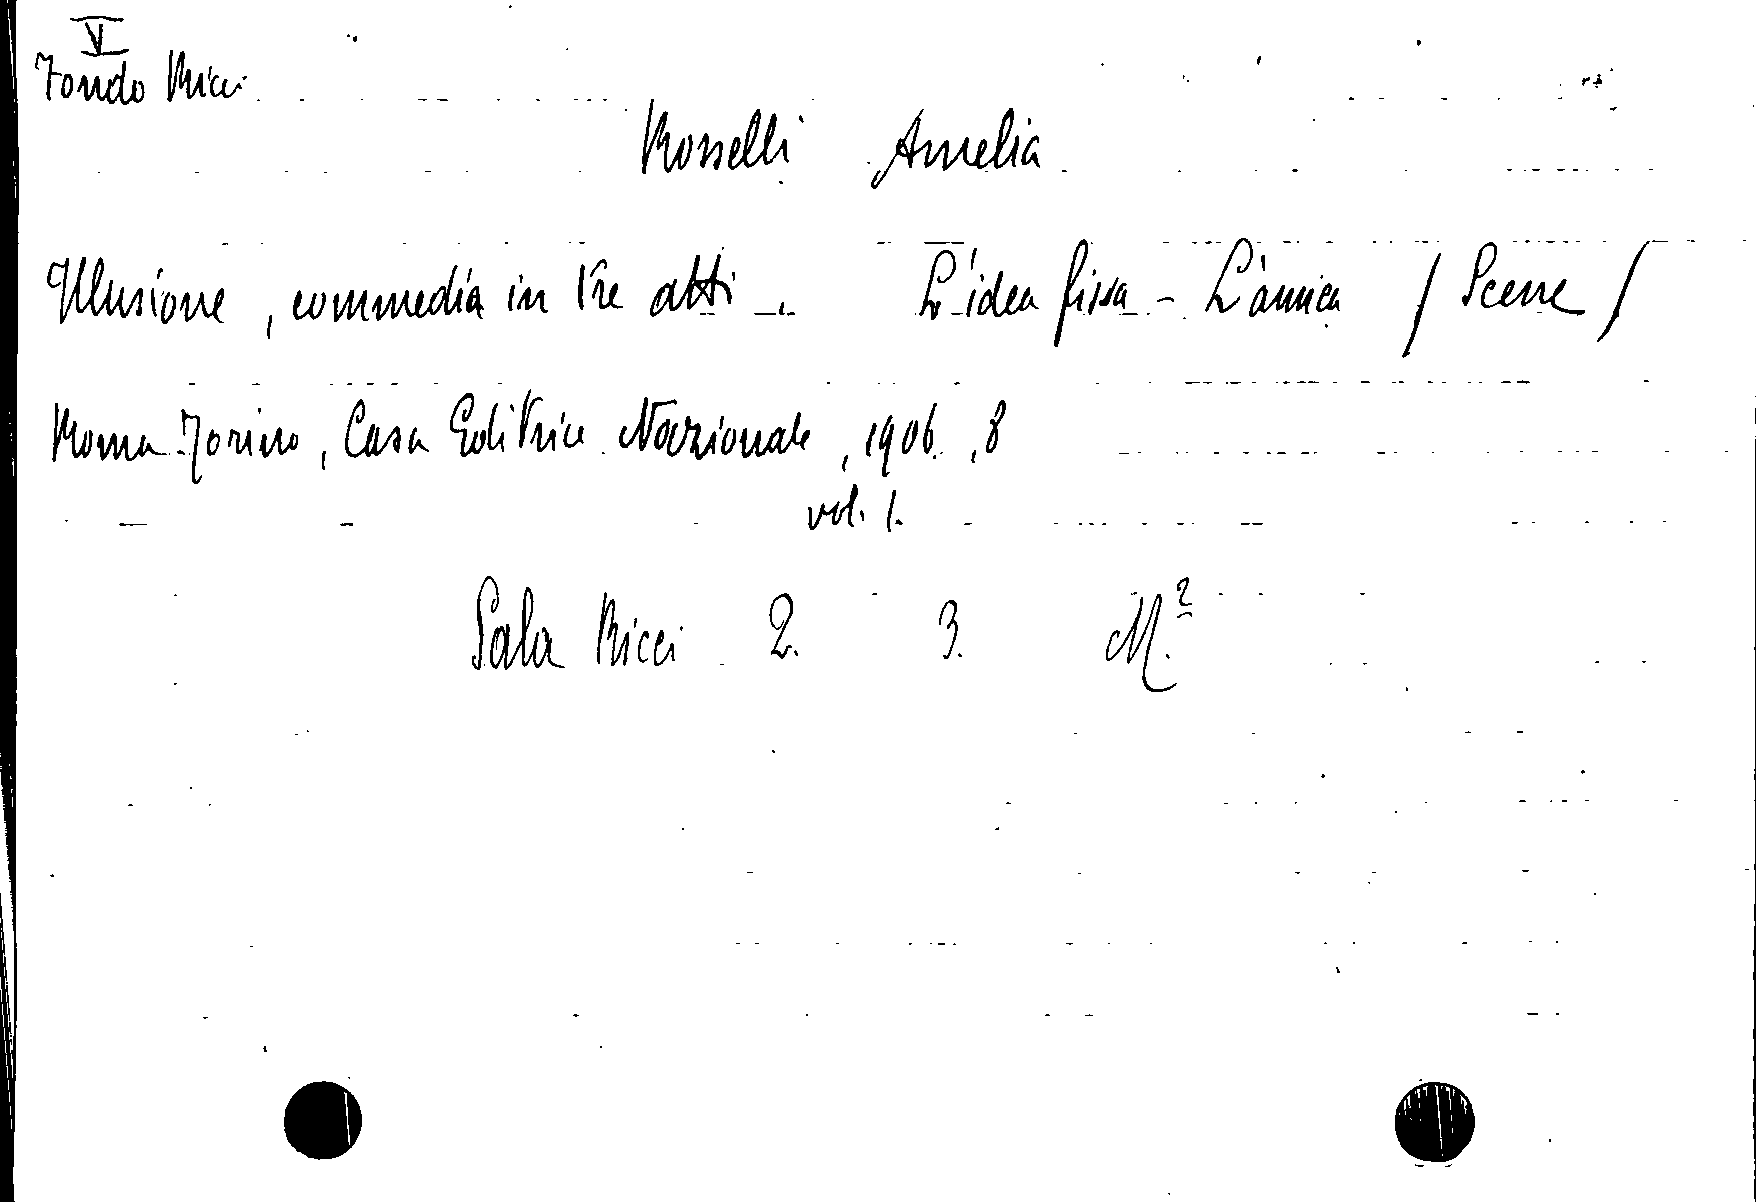 V
Fondo Ricci
Rosselli Amelia
Illusione, commedia in tre atti. L'idea fissa - L'amica / Scene /
Roma-Torino, Casa Editrice Nazionale, 1906, 8
vol. 1.
Sala Ricci 2. 3. M.2